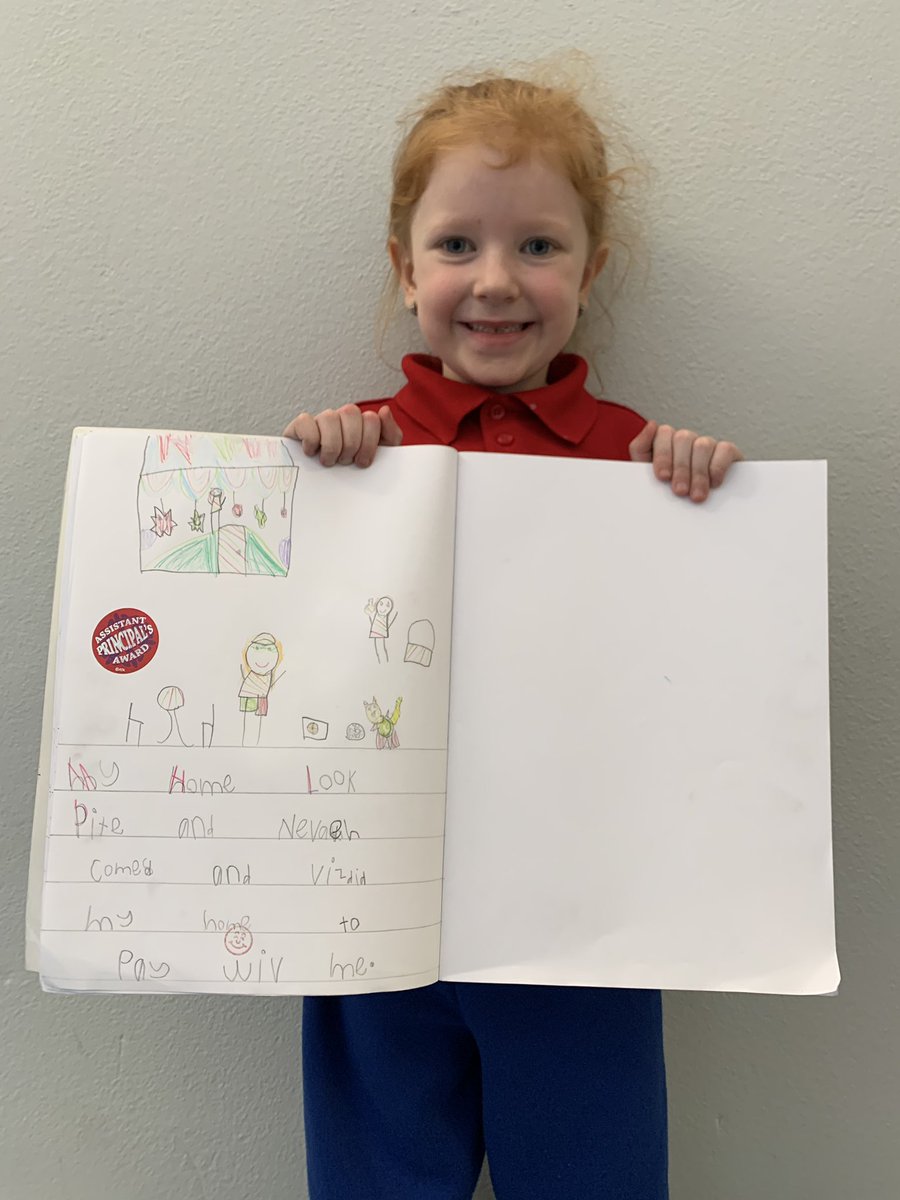 ASSISTANT
PRINCIPAL'S
AWARD
My Home Look
Pite and Nevaeh
comed and vizdid
my home to
Pay wiv me.